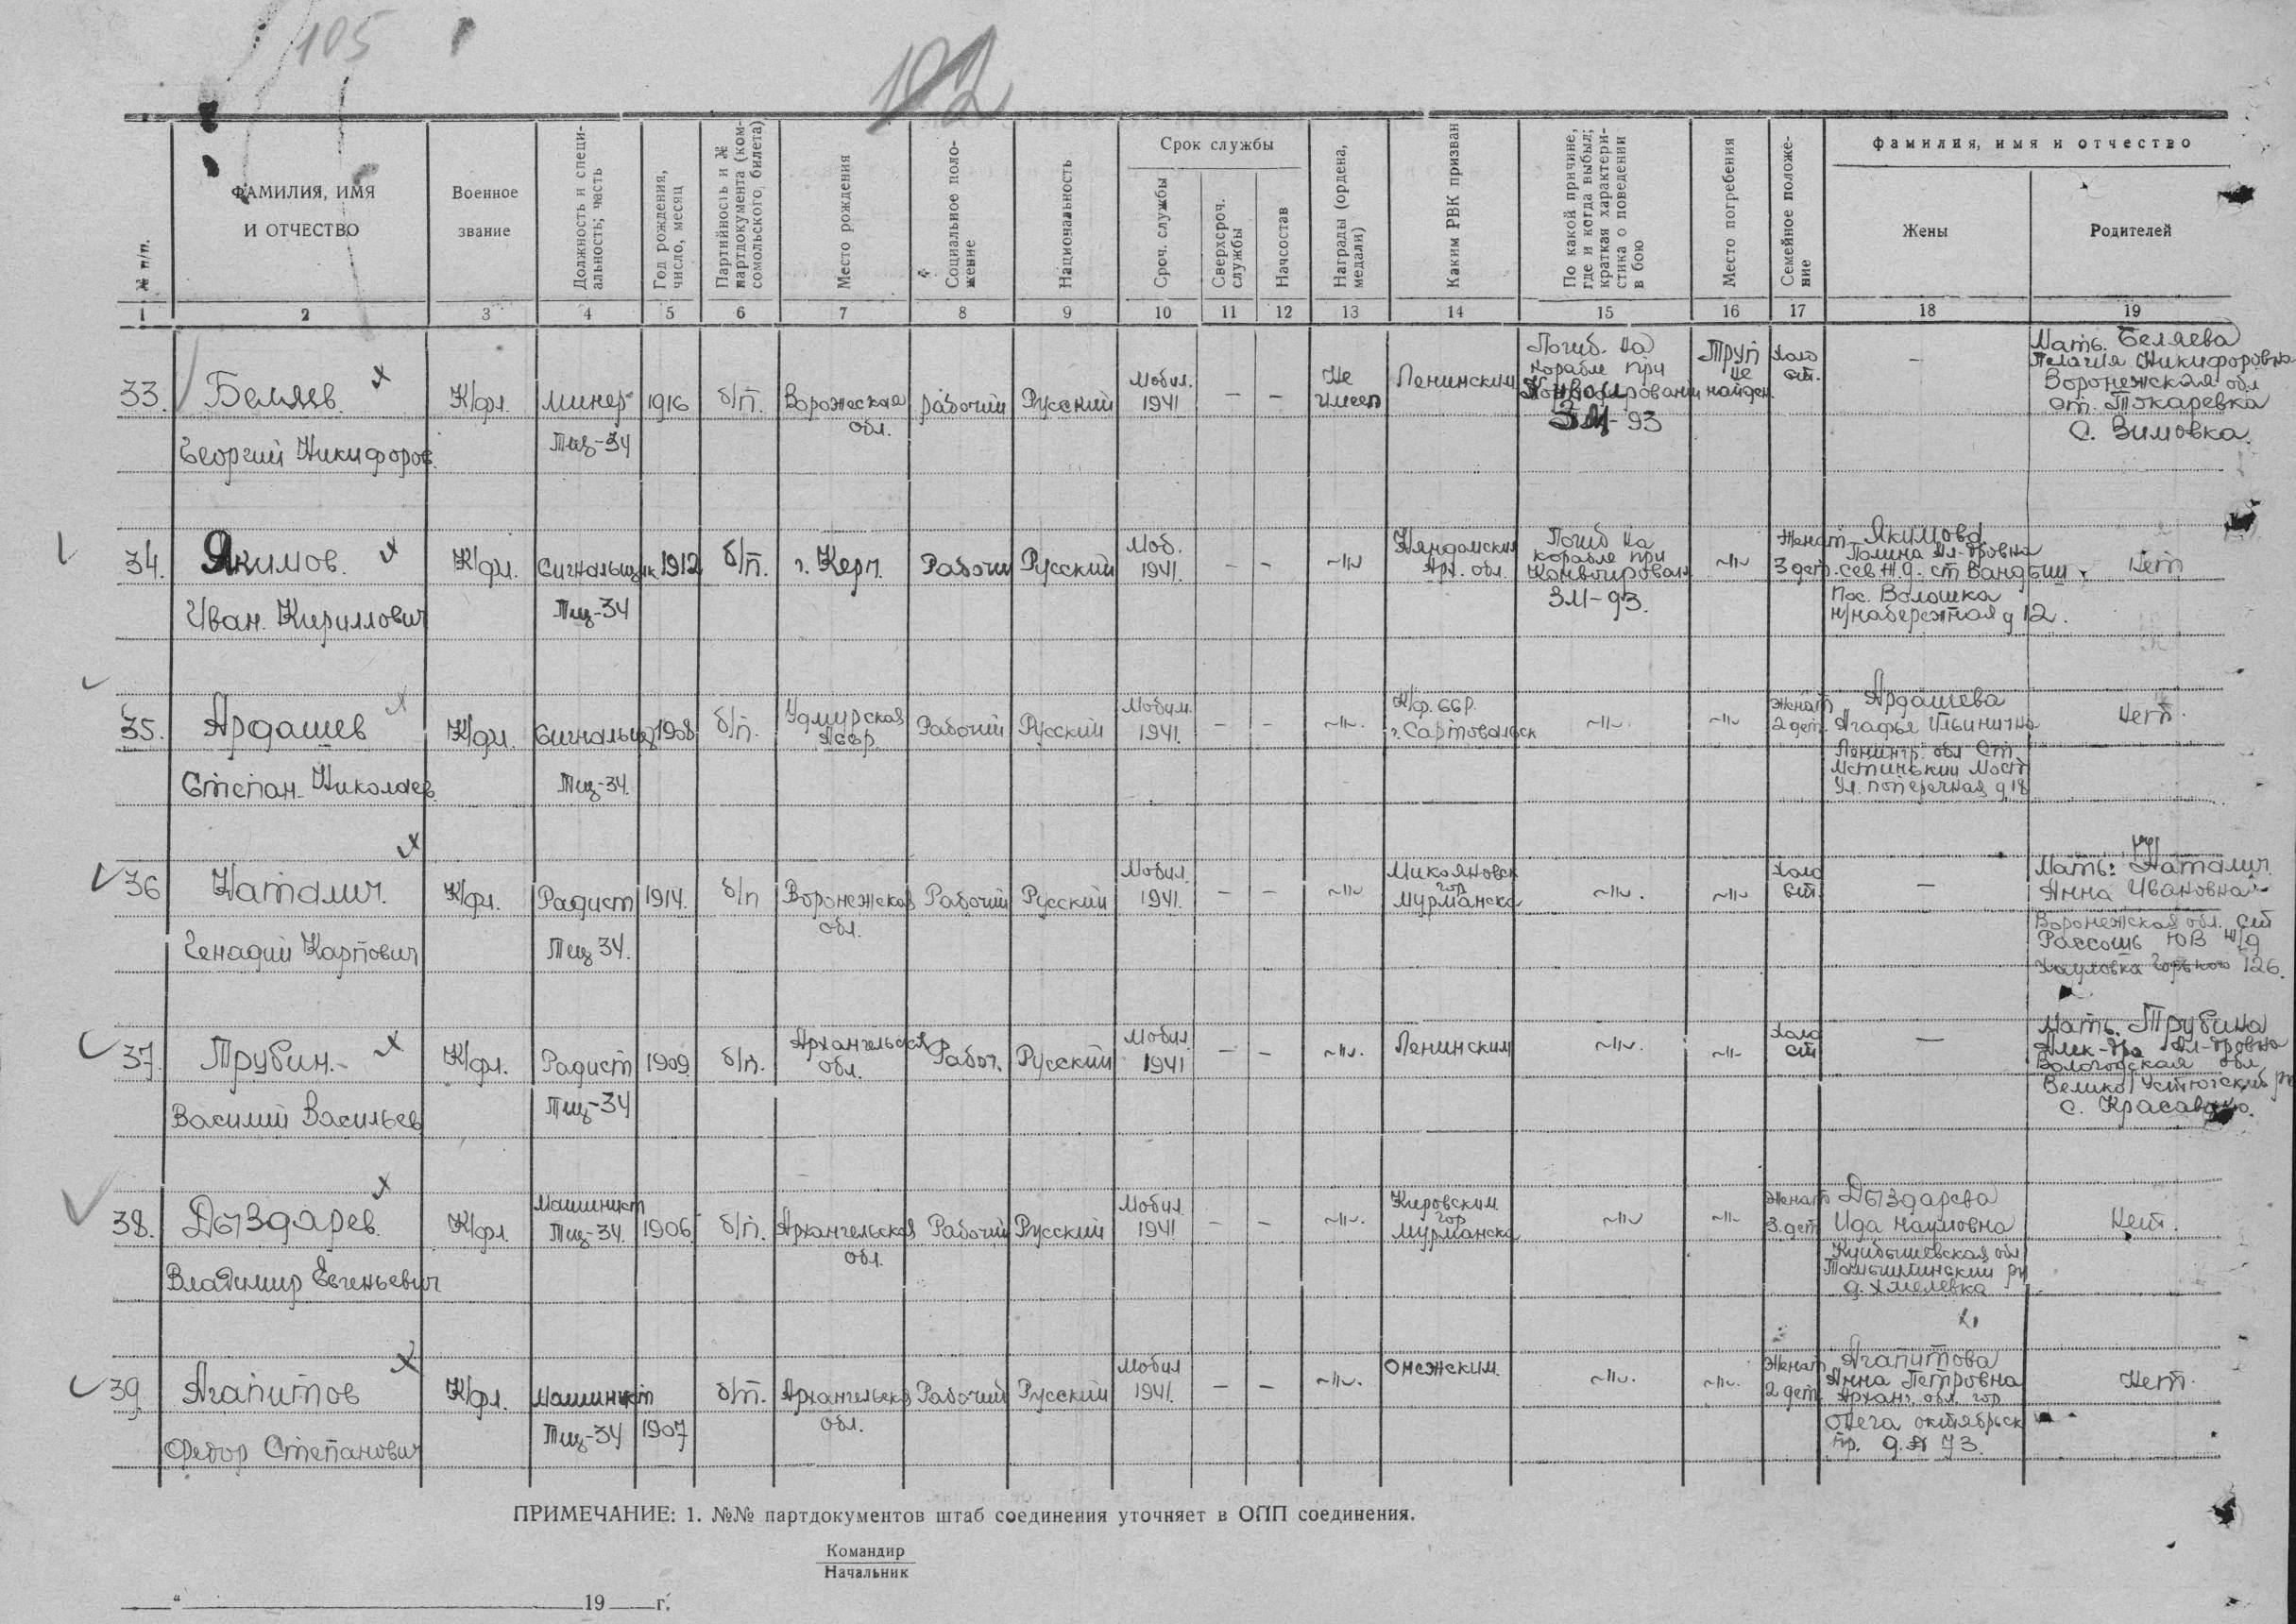 105
102
№ п/п.
ФАМИЛИЯ, ИМЯ
И ОТЧЕСТВО
Военное
звание
Должность и специ-
альность; часть
Год рождения,
число, месяц
Партийность и №
партдокумента (ком-
сомольского билета)
Место рождения
Социальное поло-
жение
Национальность
Срок службы
Сроч. службы
Сверхсроч.
службы
Начсостав
Награды (ордена,
медали)
Каким РВК призван
По какой причине,
где и когда выбыл;
краткая характери-
стика о поведении
в бою
Место погребения
Семейное положе-
ние
фамилия, имя и отчество
Жены
Родителей
1 2 3 4 5 6 7 8 9 10 11 12 13 14 15 16 17 18 19
33. Беляев
Георгий Никифоров.
К/фл.
минер
Тщ-34
1916
б/п.
Воронеская
обл.
рабочий
Русский
Мобил.
1941
—
—
Не
имеет
Ленинским
Погиб. на
корабле при
Конвоировании
ЗМ-93
Труп
не
найден.
Холо
ст.
—
Мать. Беляева
Пелагия Никифоровна
Воронежская обл
ст. Токаревка
С. Зимовка.
34. Якимов.
Иван. Кириллович
К/фл.
Сигнальщик
Тщ-34
1912
б/п.
г. Керч.
Рабочи
Русский
Моб.
1941.
—
—
~"~
Няндомским
Арх. обл.
Погиб на
корабле при
конвоирован
ЗМ-93.
~"~
Женат
3 дет.
Якимова
Полина Ал-дровна
сев ж.д. ст Вандыш
пос. Волошка
н/набережная д 12.
Нет
35. Ардашев
Степан. Николаев.
К/фл.
Сигнальщ
Тщ-34.
1908
б/п.
Удмурская
АССР
Рабочий
Русский
Мобил.
1941.
—
—
~"~.
К/ф. ССР.
г. Сартовальск
~"~.
~"~
Женат
2 дет.
Ардашева
Агафья Ильинична
Ленингр. обл Ст.
Мстинский Мост
Ул. поперечная д 18
Нет.
36 Наталич.
Генадий Карпович
К/фл.
Радист
Тщ 34.
1914.
б/п
Воронежская
обл.
Рабочий
Русский
Мобил.
1941.
—
—
~"~
Микояновск
гор
Мурманска
~"~.
~"~
Холо
ст.
—
Мать: Наталич.
Анна Ивановна
Воронежская обл. ст
Рассошь ЮВ ж/д
Горького 126.
37. Трубин.
Василий Васильев
К/фл.
Радист
Тщ-34
1909
б/п.
Архангельская
обл.
Работ.
Русский
Мобил.
1941
—
—
~"~.
Ленинским
~"~.
~"~
Холо
ст
—
Мать. Трубина
Алек-дра Ал-дровна
Вологодская обл
Велико Устюгский рн
с. Красавино.
38. Дыздарев.
Владимир Евгеньевич
К/фл.
Машинист
Тщ-34.
1906
б/п.
Архангельская
обл.
Рабочий
Русский
Мобил.
1941
—
—
~"~.
Кировским
гор
Мурманска
~"~
~"~
Женат
3 дет
Дыздарева
Ида Наумовна
Куйбышевская обл
рн
д. Хмелевка
Нет.
39. Агапитов
Федор Степанович
К/фл.
Машинист
Тщ-34
1907
б/п.
Архангельска
обл.
Рабочий
Русский
Мобил
1941.
—
—
~"~.
Онежским.
~"~.
~"~.
Женат
2 дет.
Агапитова
Анна Петровна
Арханг. обл. гор
Онега октябрьск
пр. д. 73.
Нет.
ПРИМЕЧАНИЕ: 1. №№ партдокументов штаб соединения уточняет в ОПП соединения.
Командир
Начальник
" 19 г.